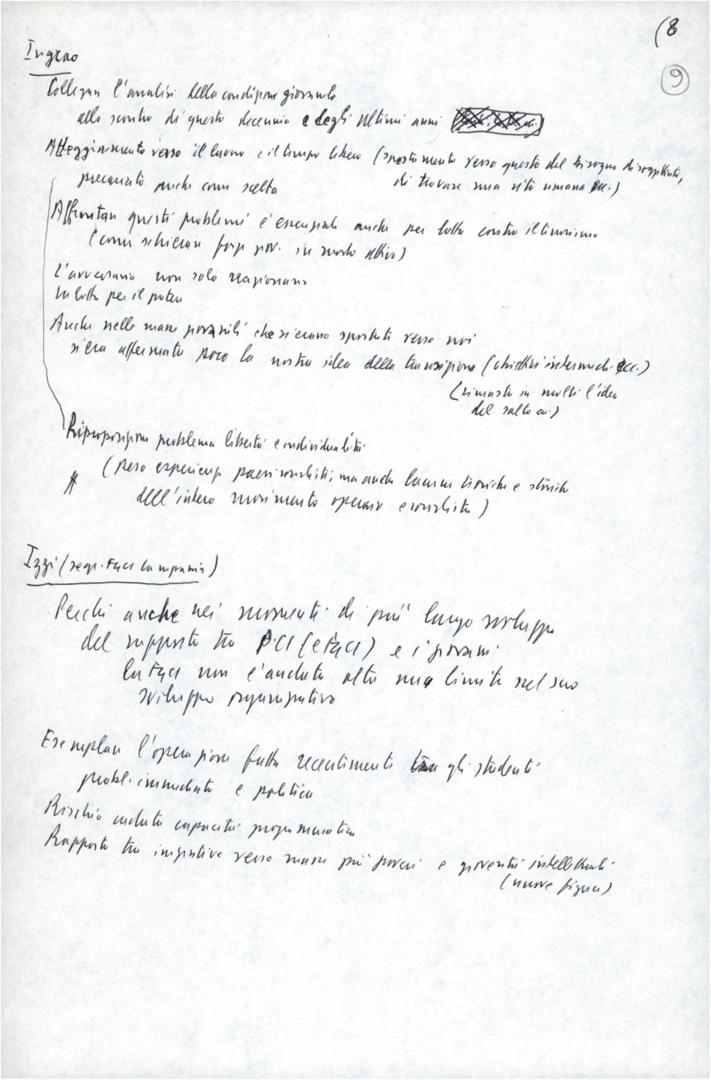 (8
9
Ingrao
Collegare l'analisi della condizione giovanile
allo scontro di questo decennio e degli ultimi anni
Atteggiamento verso il lavoro e il tempo libero (spostamento verso questo del bisogno
precariato anche come scelta di trovare una vita umana ecc.)
Affrontare questi problemi è essenziale anche per lotta contro il terrorismo
(come schierare forze giov. in modo attivo)
L'avversario non solo reazionario
in lotta per il potere
Anche nelle masse giovanili che si erano spostate verso noi
si era affermata poco la nostra idea della transizione (obiettivi intermedi ecc.)
(rimasta in molti l'idea
del salto ecc.)
Riproposizione problema libertà e individualità
(Peso esperienze paesi socialisti, ma anche lacune teoriche e storiche
dell'intero movimento operaio e socialista)
Izzi (segr. FGCI Campania)
Perché anche nei momenti di più largo sviluppo
del rapporto tra PCI (e FGCI) e i giovani
la FGCI non è andata oltre una limite nel suo
sviluppo organizzativo
Esemplare l'operazione fatta recentemente tra gli studenti
probl. immediato e politica
Rischio caduta capacità programmatica
Rapporto tra iniziative verso masse più povere e gioventù intellettuale
(nuove figure)